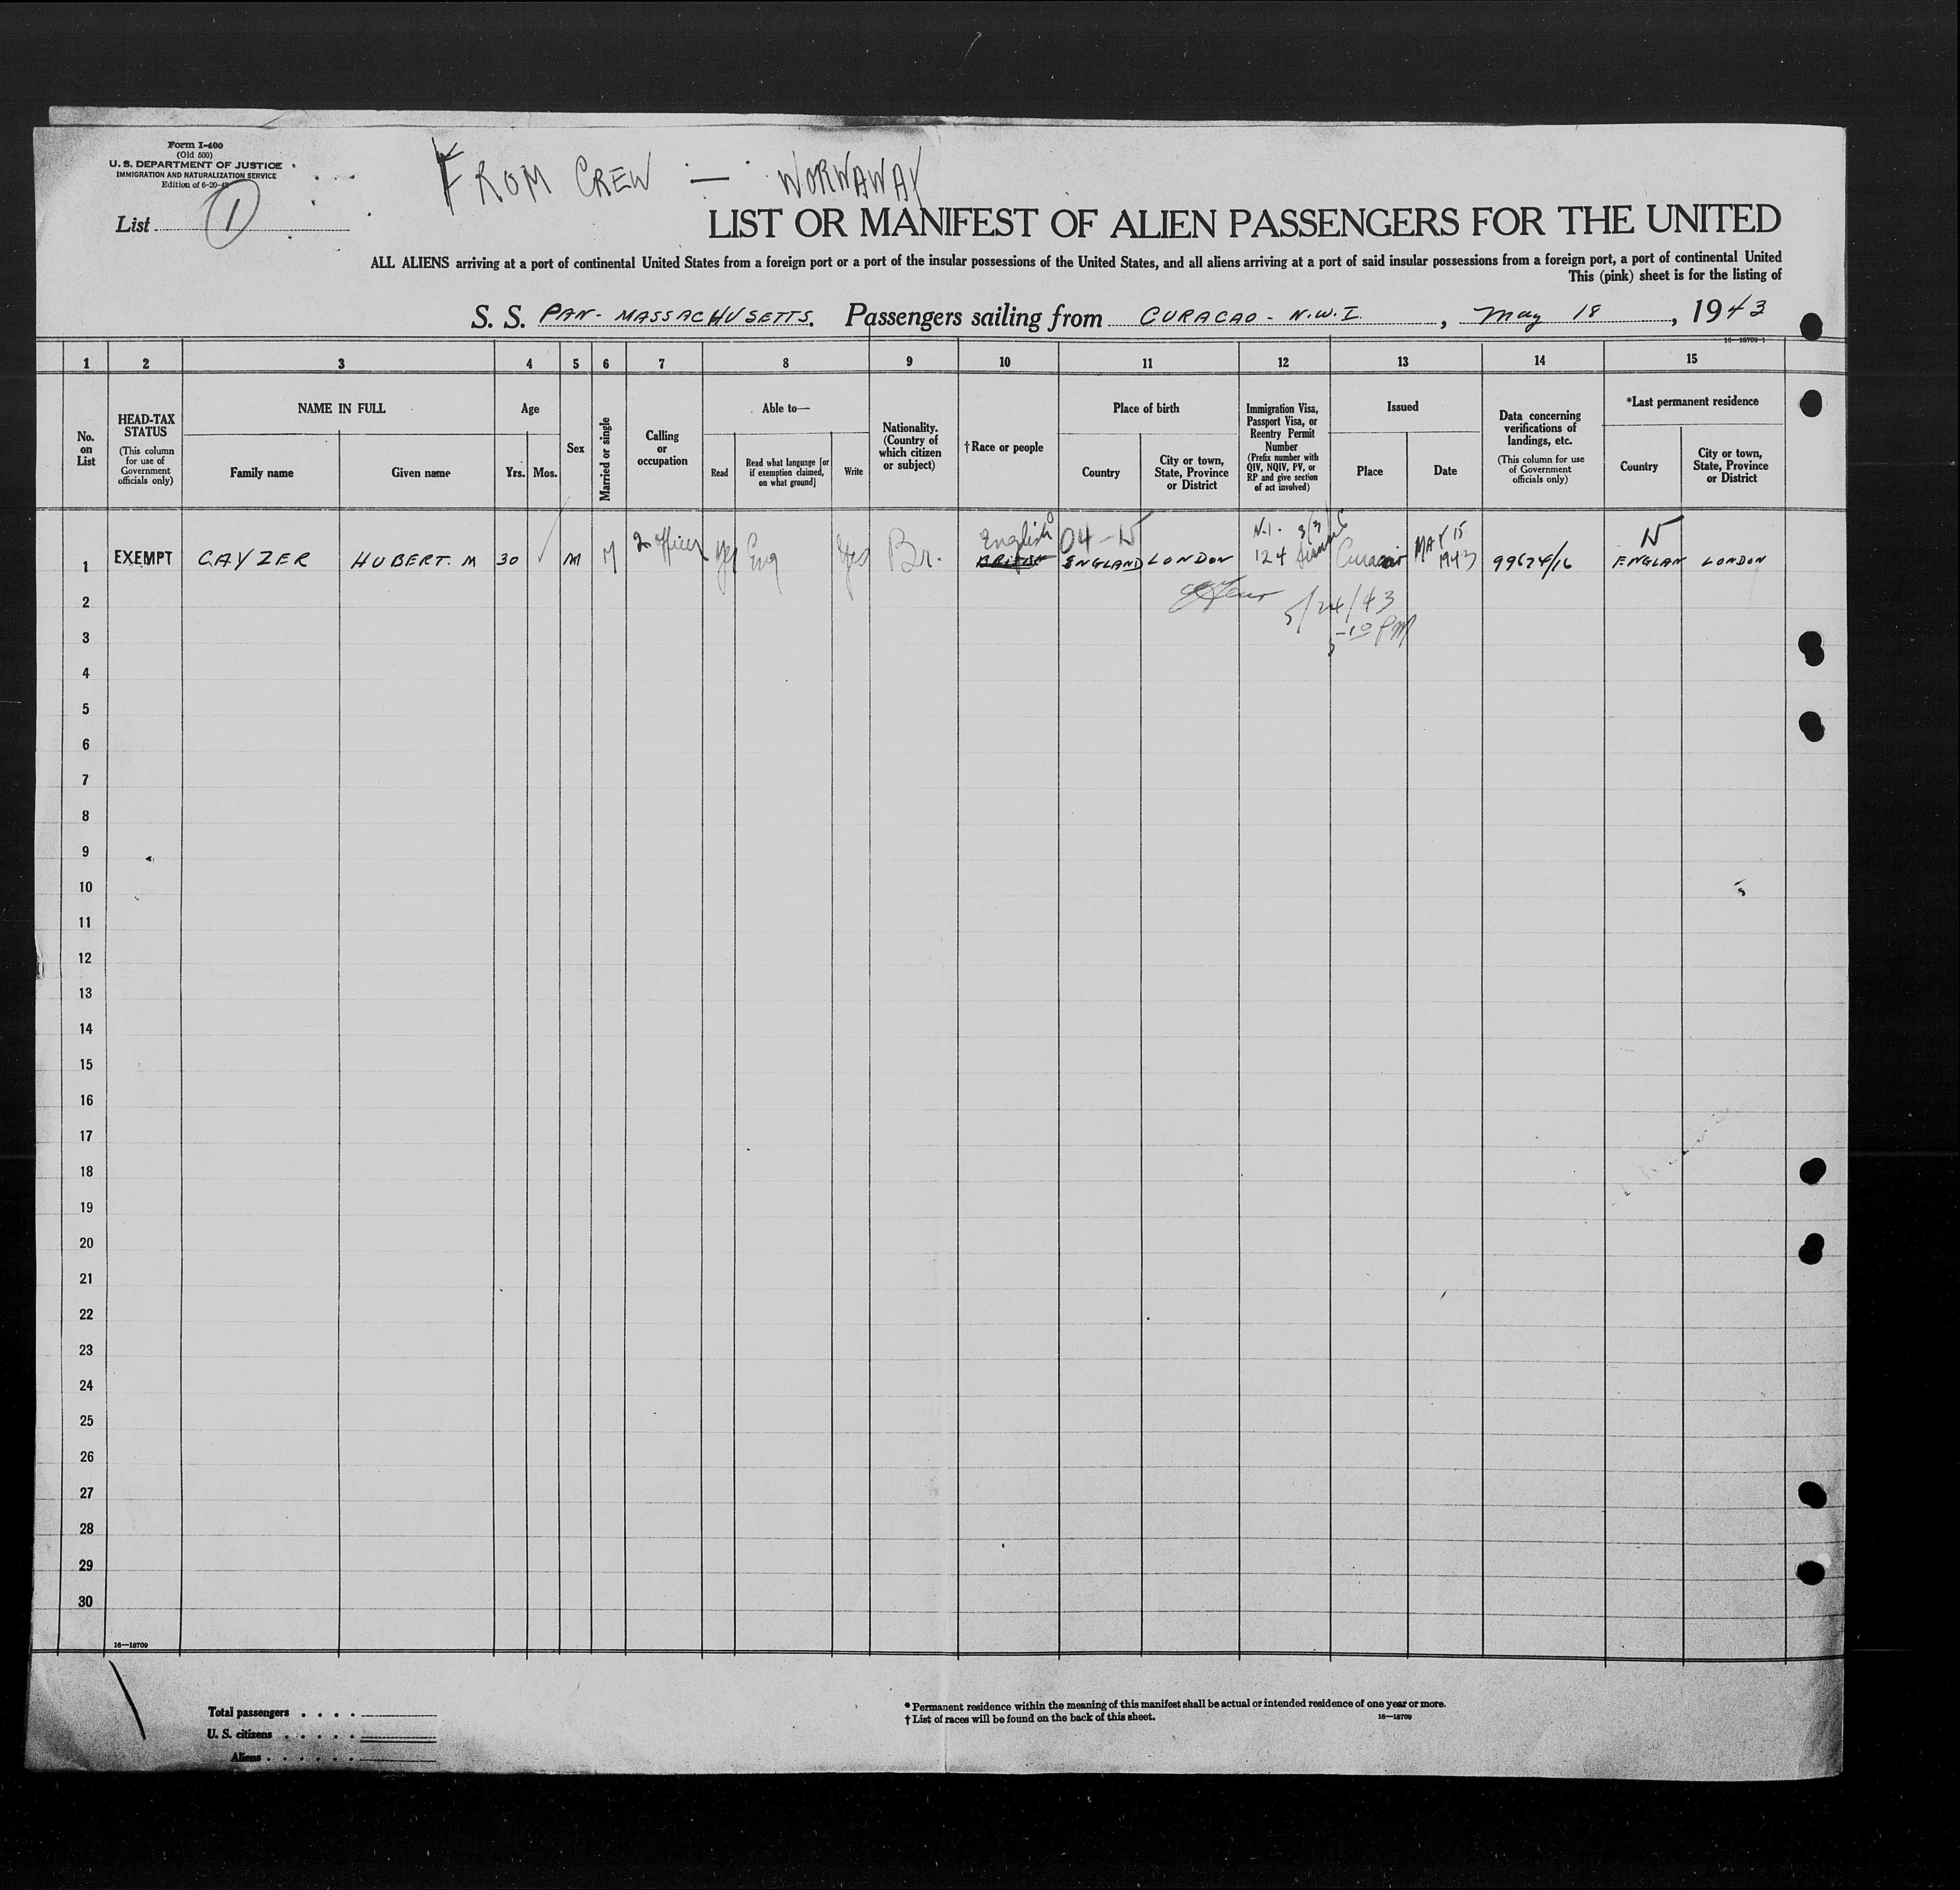 Form I-400
(Old 500)
U. S. DEPARTMENT OF JUSTICE
IMMIGRATION AND NATURALIZATION SERVICE
Edition of 6-20-42
FROM CREW — WORKAWAY
List 1
LIST OR MANIFEST OF ALIEN PASSENGERS FOR THE UNITED
ALL ALIENS arriving at a port of continental United States from a foreign port or a port of the insular possessions of the United States, and all aliens arriving at a port of said insular possessions from a foreign port, a port of continental United
This (pink) sheet is for the listing of
S. S. PAN-MASSACHUSETTS. Passengers sailing from CURACAO - N.W.I., May 18, 1943
16—18709-1
1 2 3 4 5 6 7 8 9 10 11 12 13 14 15
No. on List
HEAD-TAX STATUS
(This column for use of Government officials only)
NAME IN FULL
Family name
Given name
Age
Yrs.
Mos.
Sex
Married or single
Calling or occupation
Able to—
Read
Read what language [or if exemption claimed, on what ground]
Write
Nationality. (Country of which citizen or subject)
†Race or people
Place of birth
Country
City or town, State, Province or District
Immigration Visa, Passport Visa, or Reentry Permit Number
(Prefix number with QIV, NQIV, PV, or RP and give section of act involved)
Issued
Place
Date
Data concerning verifications of landings, etc.
(This column for use of Government officials only)
*Last permanent residence
Country
City or town, State, Province or District
English 04 - N N.I. 3/3
1 EXEMPT CAYZER HUBERT. M 30 M M 2 officer Yes Eng Yes Br. BRITISH ENGLAND LONDON 124 Curacao MAY 15 1943 99674/16 ENGLAN LONDON
5/24/43
5-10 PM
2
3
4
5
6
7
8
9
10
11
12
13
14
15
16
17
18
19
20
21
22
23
24
25
26
27
28
29
30
16—18709
Total passengers . . . .
U. S. citizens . . . . .
Aliens . . . . . .
* Permanent residence within the meaning of this manifest shall be actual or intended residence of one year or more.
† List of races will be found on the back of this sheet.
16—18709